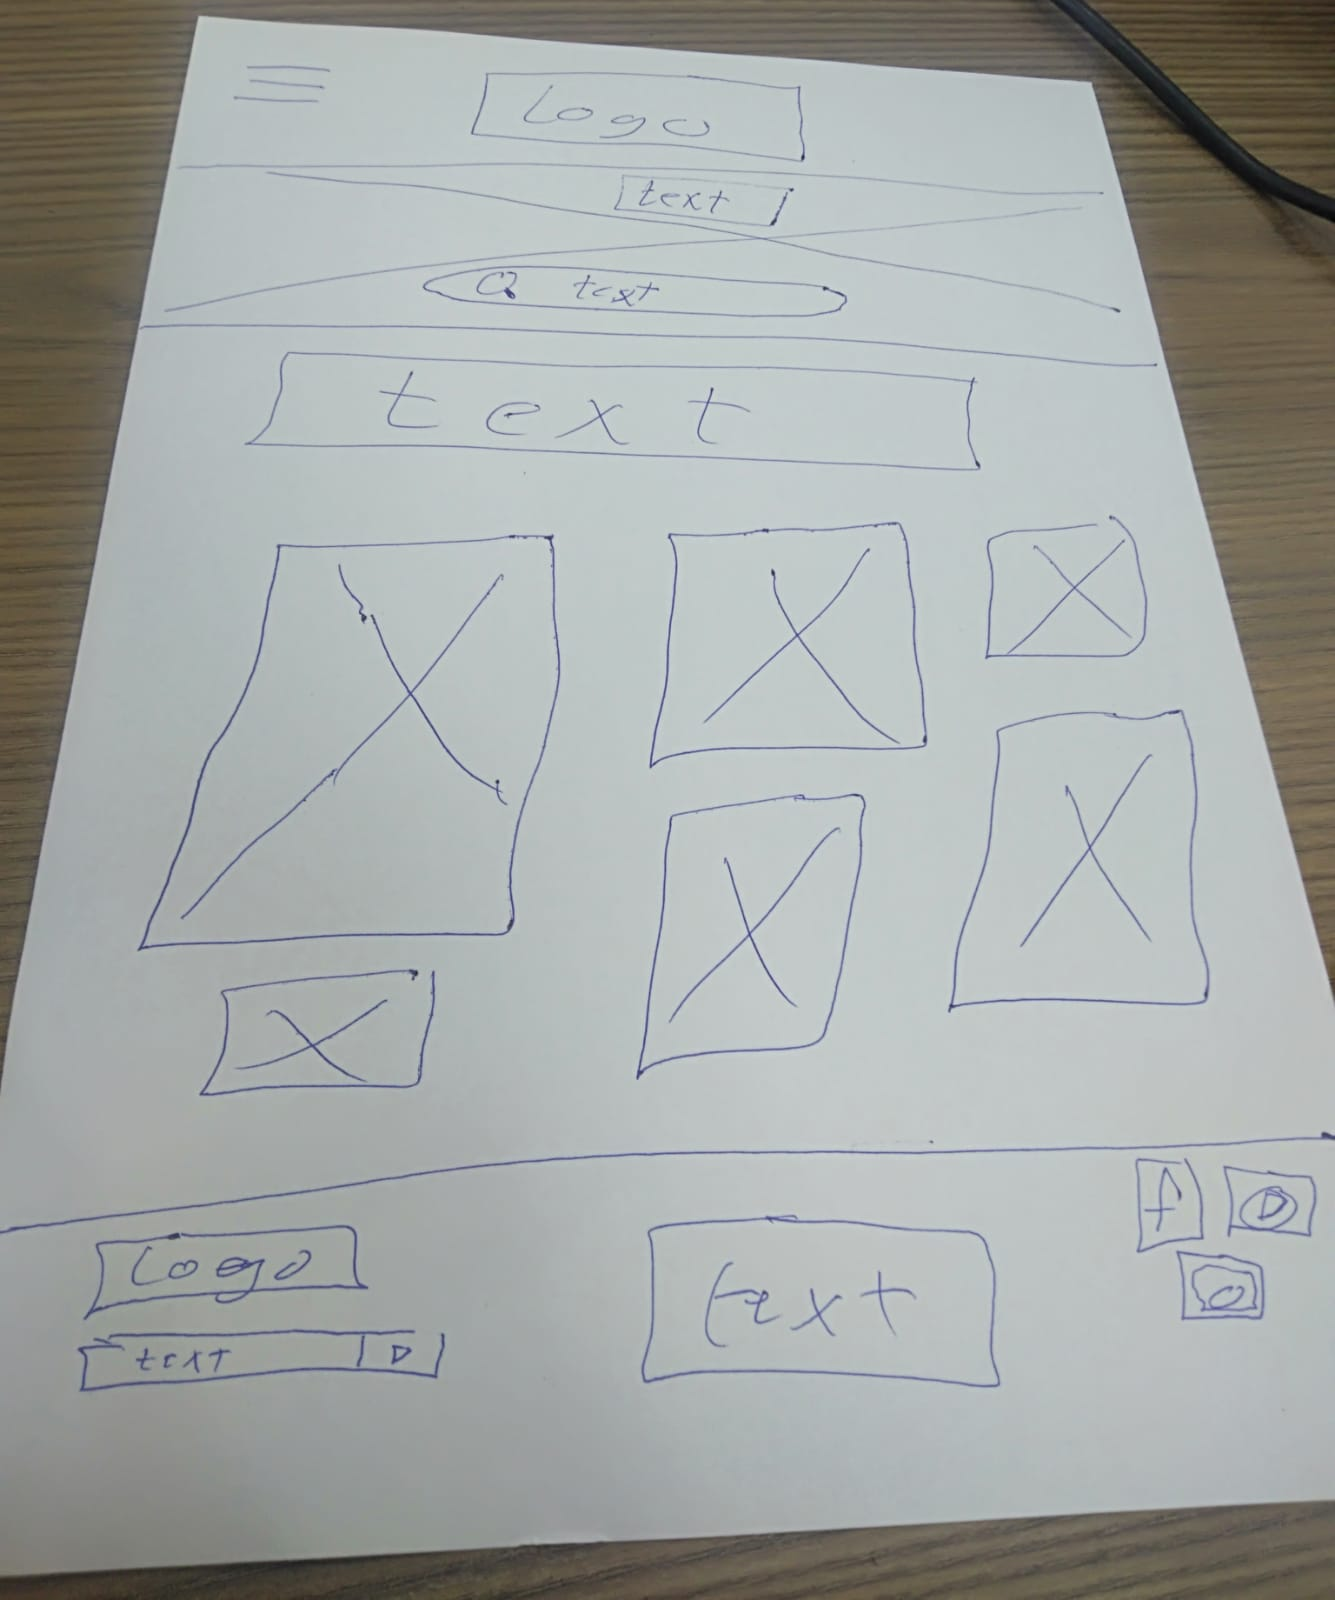 Logo
text
text
text
Logo
text
text
f